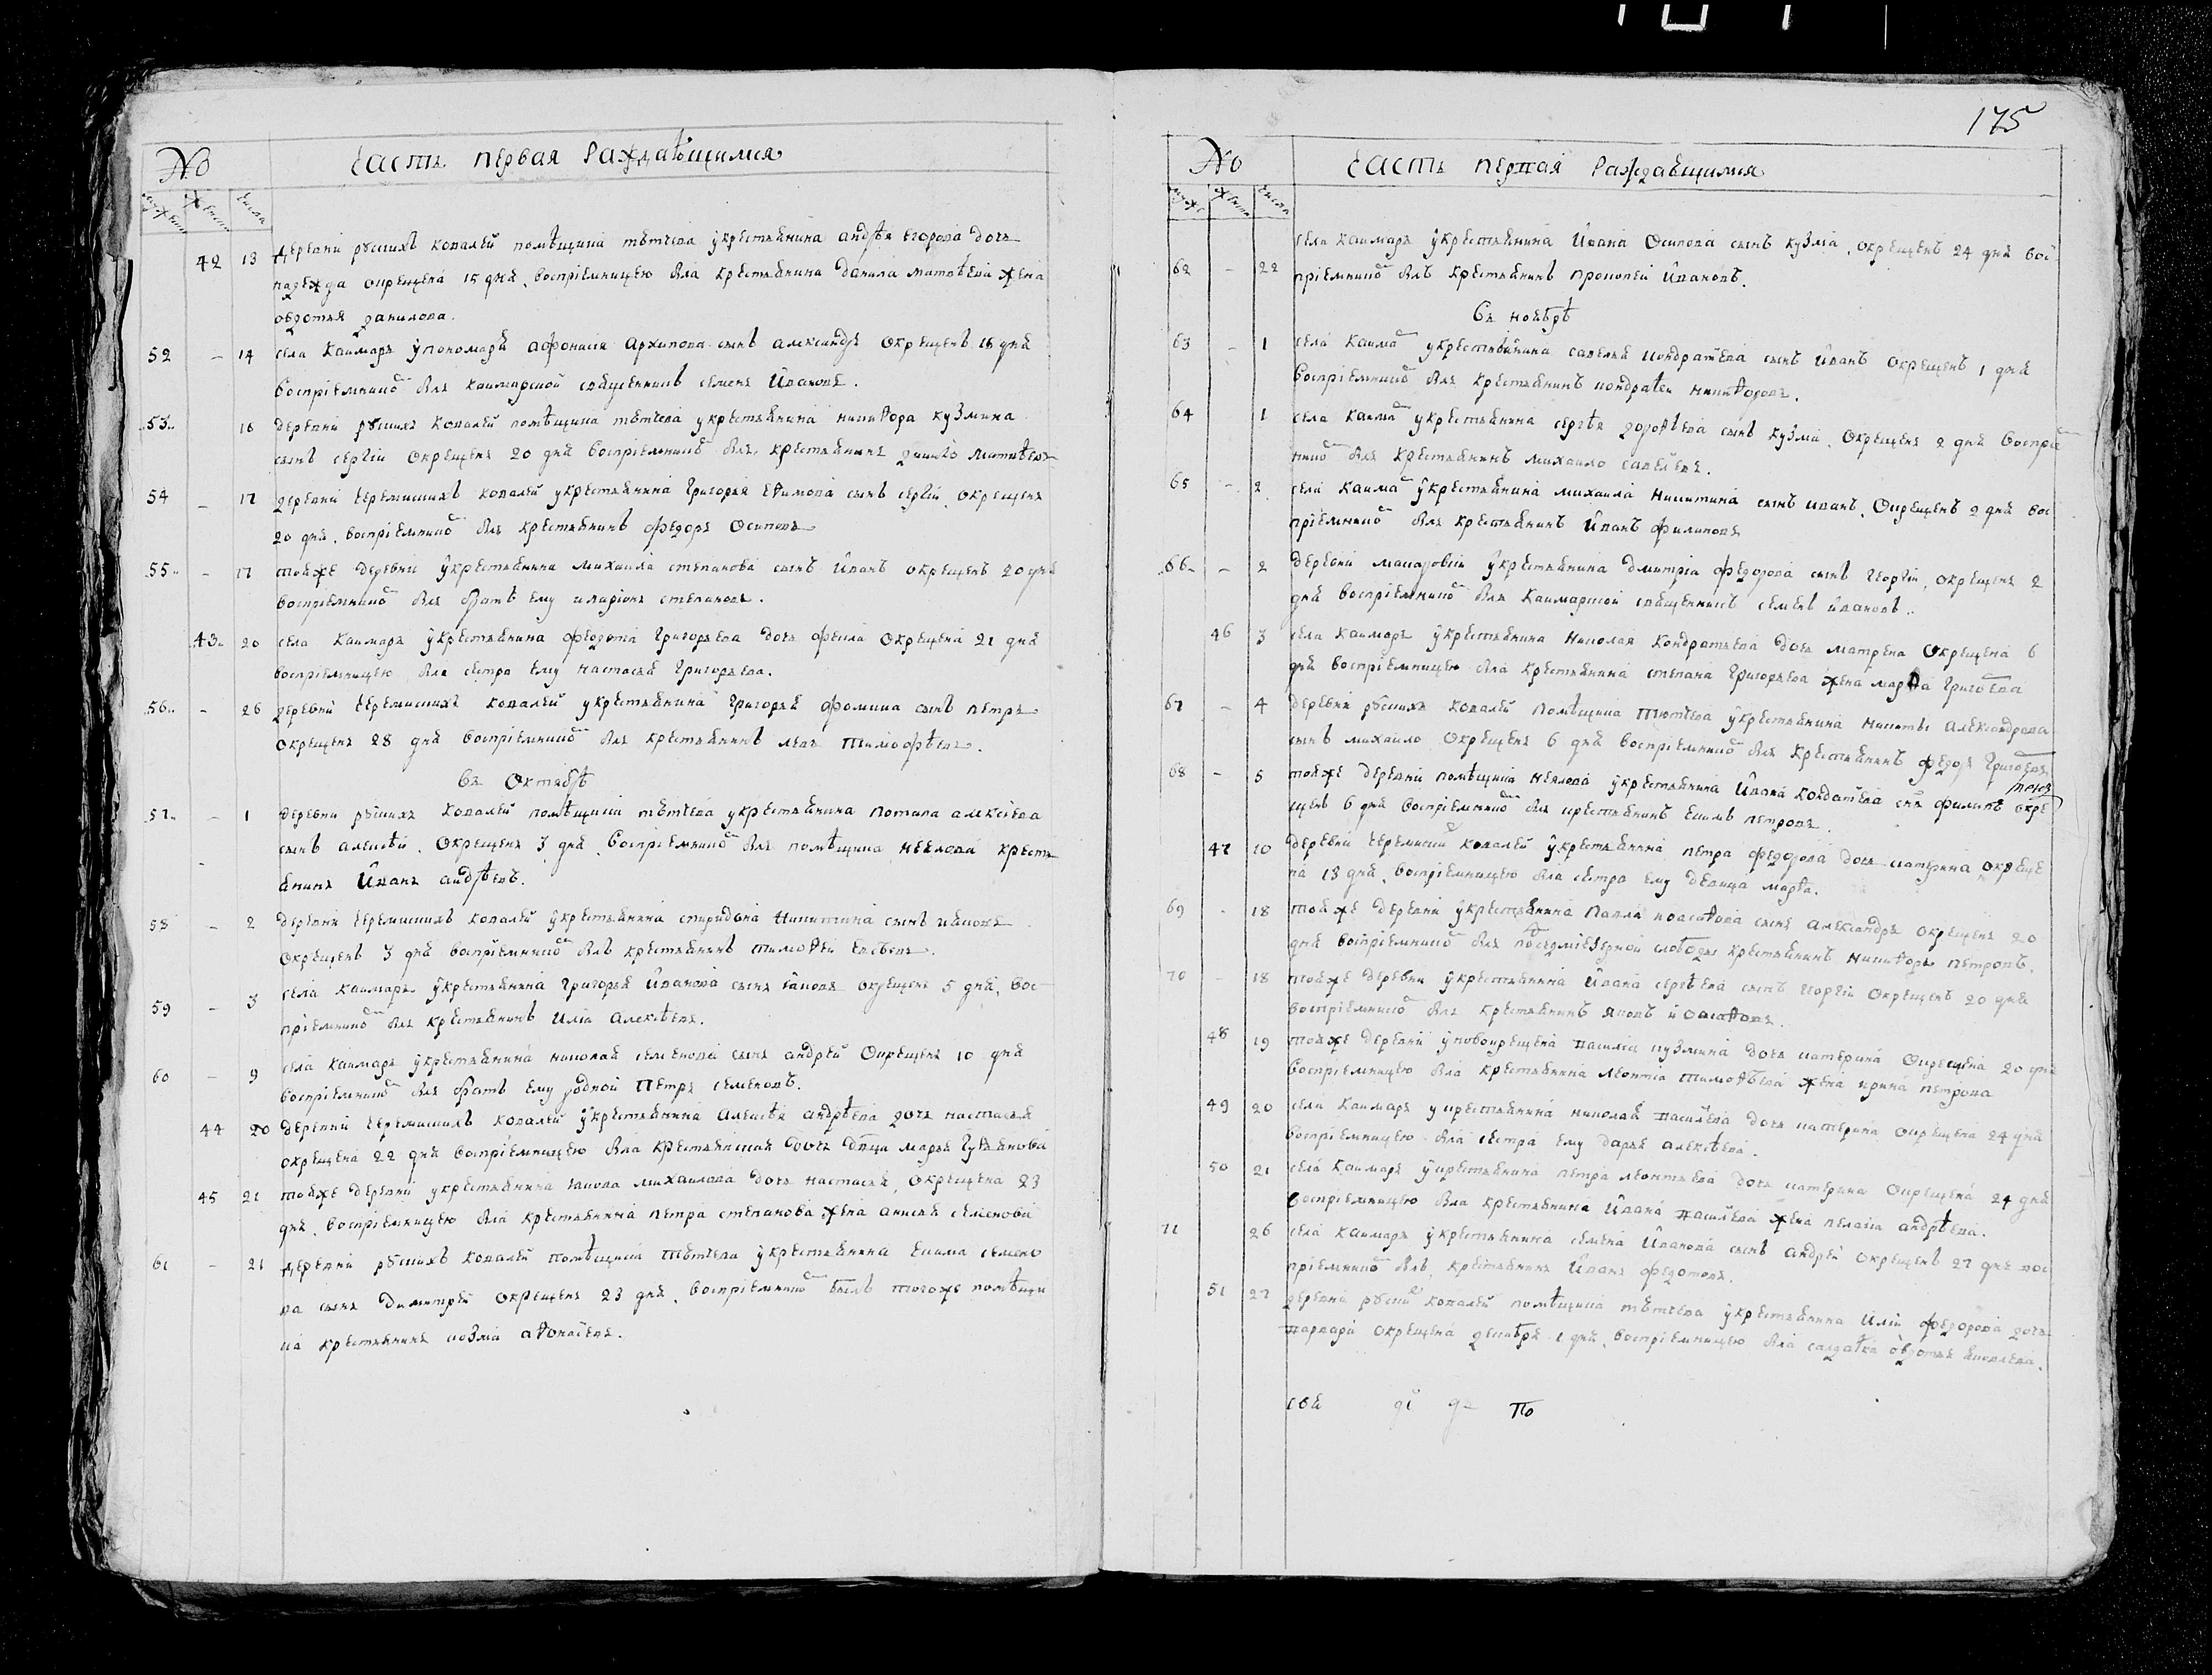 № часть первая раждающимся
мужеск женск числа
42 13 деревни рускихъ ковалей помѣщика тютчева у крестьянина андрѣя егорова дочь
надежда окрещена 15 дня, воспріемницею бла крестьянина данила матвѣева жена
овдотья данилова.
52 – 14 села Каимаръ у пономаря афонасія Архипова сынъ александръ окрещенъ 16 дня
воспріемникомъ блъ каимарской священникъ семенъ Ивановъ.
53 16 деревни рускихъ ковалей помѣщика тютчева у крестьянина никифора кузмина
сынъ сергѣй окрещенъ 20 дня воспріемникомъ блъ крестьянинъ матвѣевъ
54 – 17 деревни черемискихъ ковалей у крестьянина Григорья Ефимова сынъ сергѣй, окрещенъ
20 дня, воспріемникомъ блъ крестьянинъ федоръ Осиповъ
55 – 17 тойже деревни у крестьянина михаила степанова сынъ Иванъ окрещенъ 20 дня
воспріемникомъ блъ братъ ему иларіонъ степановъ.
43 20 села Каимаръ у крестьянина федота Григорьева дочь фекла окрещена 21 дня
воспріемницею бла сестра ему настасья Григорьева.
56 – 26 деревни черемискихъ ковалей у крестьянина Григорья фомина сынъ петръ
окрещенъ 28 дня воспріемникомъ блъ крестьянинъ левъ тимофѣевъ.
въ Октябрѣ
57 – 1 деревни рускихъ ковалей помѣщика тютчева у крестьянина потапа алексѣева
– сынъ алексѣй, окрещенъ 3 дня, воспріемникомъ блъ помѣщика неелова кресть
янинъ Иванъ андрѣевъ.
58 – 2 деревни черемискихъ ковалей у крестьянина спиридона Никитина сынъ іяковъ
окрещенъ 3 дня воспріемникомъ блъ крестьянинъ тимофей
59 – 3 села Каимаръ у крестьянина Григорья Иванова сынъ іаковъ окрещенъ 5 дня, вос
пріемникомъ блъ крестьянинъ Илія Алексѣевъ.
60 – 9 села Каимаръ у крестьянина николая семенова сынъ андрей Окрещенъ 10 дня
воспріемникомъ блъ братъ ему родной Петръ семеновъ.
44 20 деревни черемискихъ ковалей у крестьянина Алексѣя андрѣева дочь настасья
окрещена 22 дня воспріемницею бла крестьянская дочь двца марья
45 21 тойже деревни у крестьянина іакова михаилова дочь настасья, окрещена 23
дня, воспріемницею бла крестьянина петра степанова жена анисья семенова
61 – 21 деревни рускихъ ковалей помѣщика тютчева у крестьянина Екима семено
ва сынъ Димитрей окрещенъ 23 дня, воспріемникомъ былъ тогоже помѣщи
ка крестьянинъ козма афонасьевъ.
175
№ часть первая раждающимся
мужс женск числа
села каимаръ у крестьянина Ивана Осипова сынъ кузма, окрещенъ 24 дня вос
62 – 22 пріемникомъ блъ крестьянинъ прокопей Ивановъ.
въ ноябрѣ
63 – 1 села Каимаръ у крестьянина савелья кондратьева сынъ Иванъ Окрещенъ 1 дня
воспріемникомъ блъ крестьянинъ кондратеи никифоровъ.
64 1 села Каимаръ у крестьянина сергѣя дорофѣева сынъ кузма, окрещенъ 2 дня воспріем
никомъ блъ крестьянинъ михаило савельевъ.
65 – 2 села Каимаръ у крестьянина михаила никитина сынъ иванъ, окрещенъ 2 дня вос
пріемникомъ блъ крестьянинъ Иванъ филиповъ
66 – 2 деревни макаровки у крестьянина дмитрія федорова сынъ георгій, окрещенъ 2
дня воспріемникомъ блъ Каимарской священникъ семенъ ивановъ.
46 3 села Каимаръ у крестьянина николая кондратьева дочь матрена Окрещена 6
дня воспріемницею бла крестьянина степана Григорьева жена марфа Григорьева
67 – 4 деревни рускихъ ковалей помѣщика Тютчева у крестьянина никиты Александрова
сынъ михаило окрещенъ 6 дня воспріемникомъ блъ крестьянинъ федоръ Григорьевъ
68 – 5 тойже деревни помѣщика Неелова у крестьянина Ивана Кондатьева снъ филипъ окре
щенъ 6 дня воспріемникомъ блъ крестьянинъ екимъ петровъ.
47 10 деревни черемискихъ ковалей у крестьянина петра федорова дочь катерина окреще
на 13 дня, воспріемницею бла сестра ему девица марфа.
69 – 18 тойже деревни у крестьянина Павла сынъ александръ окрещенъ 20
дня воспріемникомъ блъ слободы крестьянинъ никифоръ петровъ.
70 18 тойже деревни у крестьянина Ивана сергѣева сынъ георгій окрещенъ 20 дня
воспріемникомъ блъ крестьянинъ яковъ
48 19 тойже деревни у новокрещена василія кузмина дочь катерина Окрещена 20 дня
воспріемницею бла крестьянина леонтіа тимофѣева жена ирина петрова
49 20 села Каимаръ у крестьянина николая васильева дочь катерина окрещена 24 дня
воспріемницею бла сестра ему дарья алексѣева.
50 21 села Каимаръ у крестьянина петра леонтьева дочь катерина Окрещена 24 дня
воспріемницею бла крестьянина Ивана васильева жена пелагія андрѣева.
71 26 села Каимаръ у крестьянина семена Иванова сынъ андрей окрещенъ 27 дня вос
пріемникомъ блъ, крестьянинъ Иванъ федотовъ.
51 27 деревни рускихъ ковалей помѣщика тютчева у крестьянина Иліи федорова дочь
варвара окрещена декабря 1 дня, воспріемницею бла салдатка овдотья яковлева.